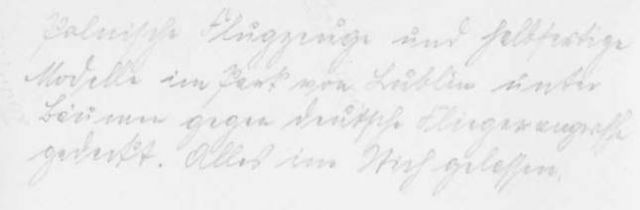 Polnische Flugzeuge und halbfertige
Modelle im Park von Lublin unter
Bäumen gegen deutsche Fliegerangriffe
gedeckt. Alles im Stich gelassen.